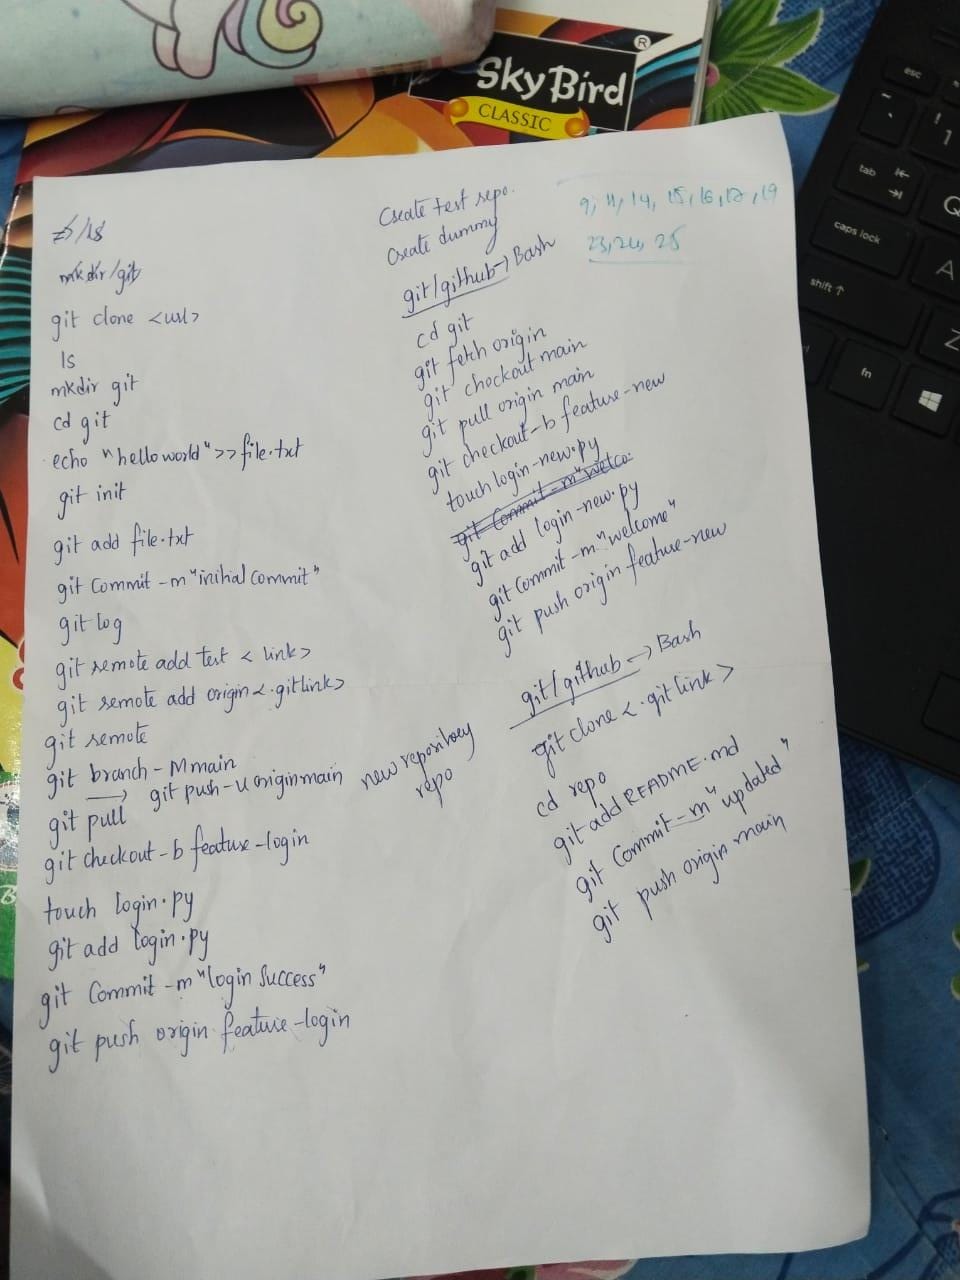 SkyBird
®
CLASSIC
mkdir/git
git clone <url>
ls
mkdir git
cd git
echo "hello world" >> file.txt
git init
git add file.txt
git Commit -m "initial Commit"
git log
git remote add test < link>
git remote add origin <.gitlink>
git remote
git branch - M main
→ git push -u origin main
new repository
repo
git pull
git checkout -b feature-login
touch login.py
git add login.py
git Commit -m "login Success"
git push origin feature-login
Create test repo.
Create dummy
git/github → Bash
cd git
git fetch origin
git checkout main
git pull origin main
git checkout -b feature-new
touch login-new.py
git Commit -m "welco
git add login-new.py
git Commit -m "welcome"
git push origin feature-new
git/github → Bash
git clone <.git link>
cd repo
git add README.md
git Commit -m "updated"
git push origin main
9, 11, 14, 15, 16, 17, 19
23, 24, 25
esc
!
1
tab
Q
caps lock
A
shift ↑
Z
fn